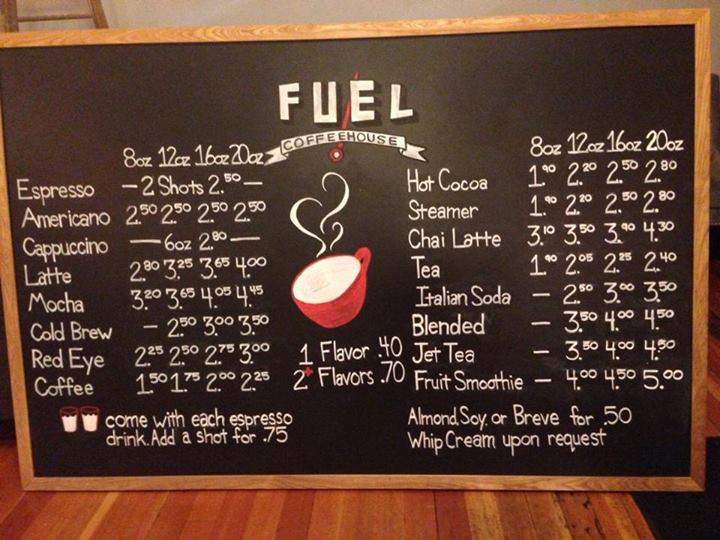 FUEL
COFFEEHOUSE
8oz 12oz 16oz 20oz
Espresso — 2 Shots 2.50 —
Americano 2.50 2.50 2.50 2.50
Cappuccino — 6oz 2.80 —
Latte 2.80 3.25 3.65 4.00
Mocha 3.20 3.65 4.05 4.45
Cold Brew — 2.50 3.00 3.50
Red Eye 2.25 2.50 2.75 3.00
Coffee 1.50 1.75 2.00 2.25
come with each espresso
drink. Add a shot for .75
1 Flavor .40
2+ Flavors .70
8oz 12oz 16oz 20oz
Hot Cocoa 1.90 2.20 2.50 2.80
Steamer 1.90 2.20 2.50 2.80
Chai Latte 3.10 3.50 3.90 4.30
Tea 1.90 2.05 2.25 2.40
Italian Soda — 2.50 3.00 3.50
Blended — 3.50 4.00 4.50
Jet Tea — 3.50 4.00 4.50
Fruit Smoothie — 4.00 4.50 5.00
Almond, Soy, or Breve for .50
Whip Cream upon request